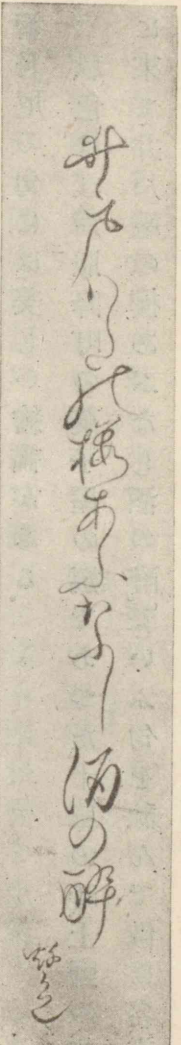 井戸ハたの桜あふなし酒の酔
秋色